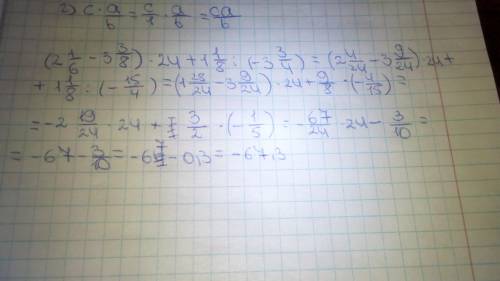 2) c · a/b = c/1 · a/b = ca/b
(2 1/6 - 3 3/8) · 24 + 1 1/8 : (-3 3/4) = (2 4/24 - 3 9/24) · 24 +
+ 1 1/8 : (-15/4) = (1 28/24 - 3 9/24) · 24 + 9/8 · (-4/15) =
= -2 19/24 · 24 + 3/2 · (-1/5) = -67/24 · 24 - 3/10 =
= -67 - 3/10 = -67 - 0,3 = -67,3